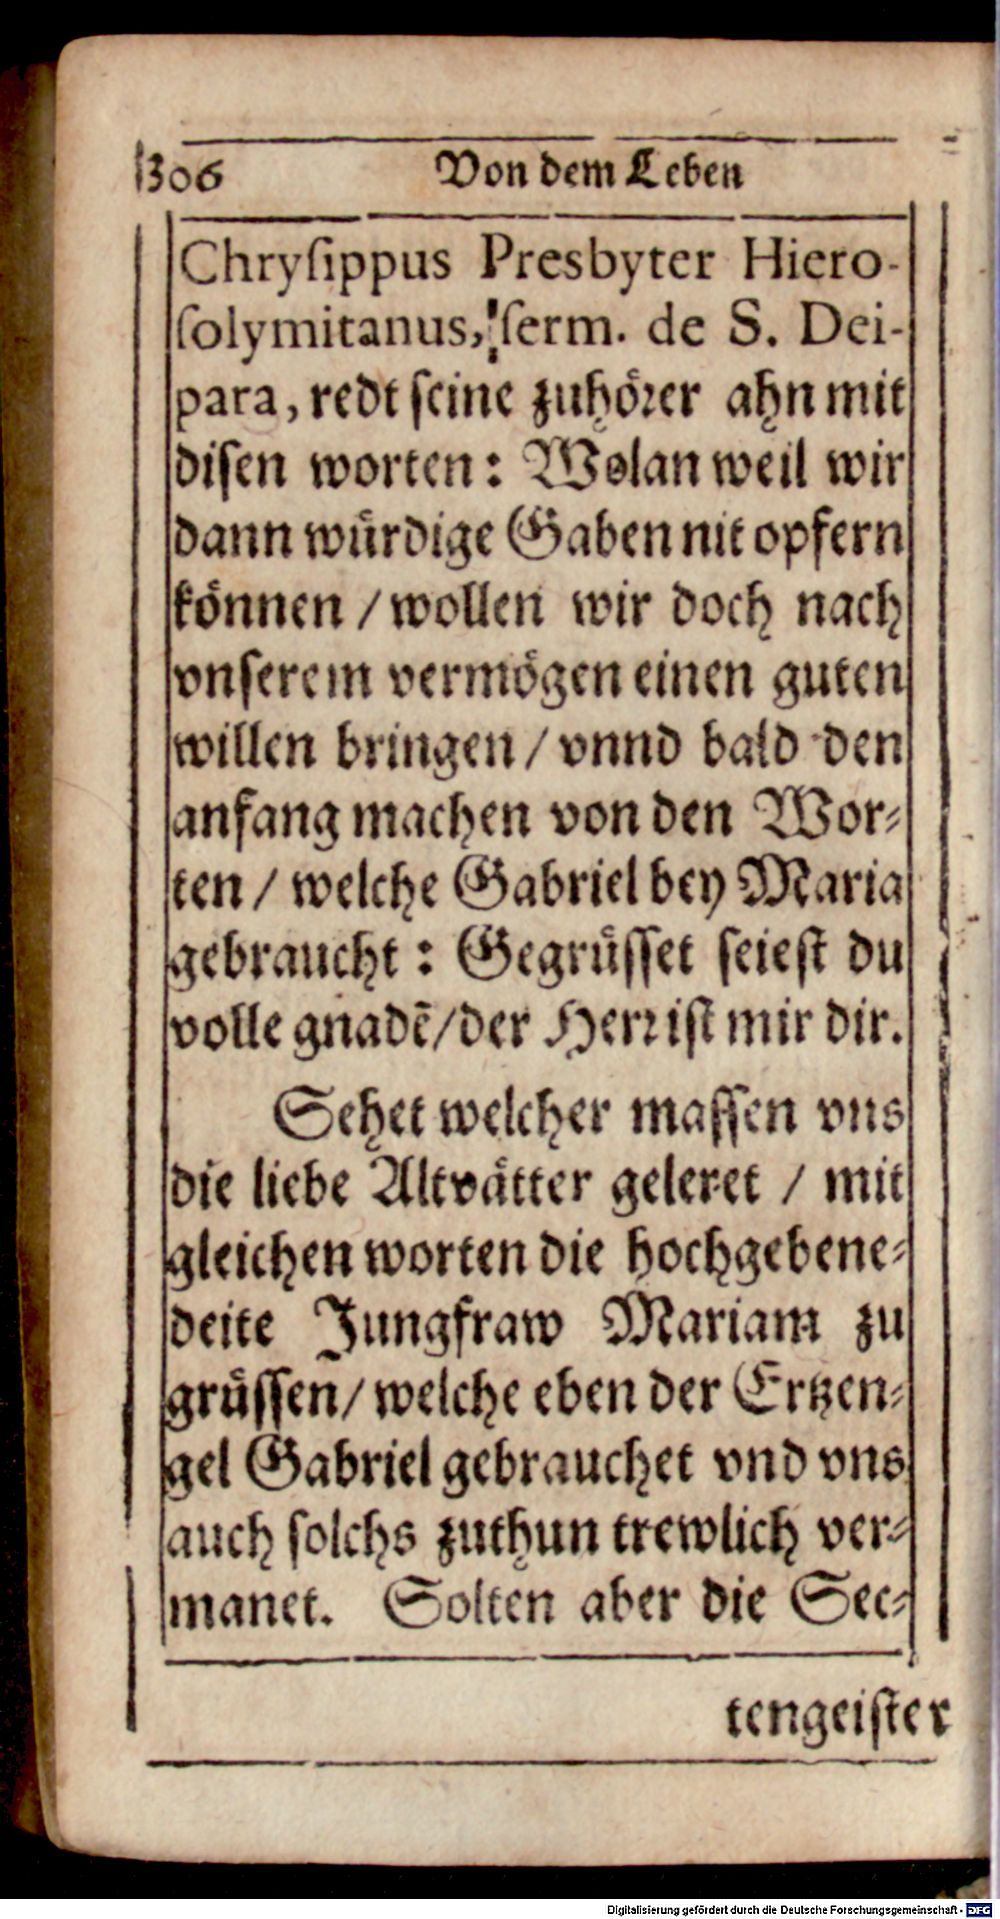 306 Von dem Leben
Chryſippus Presbyter Hiero-
ſolymitanus, ſerm. de S. Dei-
para, redt ſeine zuhörer ahn mit
diſen worten: Wolan weil wir
dann würdige Gaben nit opfern
können / wollen wir doch nach
vnſerem vermögen einen guten
willen bringen / vnnd bald den
anfang machen von den Wor⸗
ten / welche Gabriel bey Maria
gebraucht: Gegrüſſet ſeieſt du
volle gnadẽ/der Herꝛ iſt mir dir.
Sehet welcher maſſen vns
die liebe Altvätter geleret / mit
gleichen worten die hochgebene⸗
deite Jungfraw Mariam zu
grüſſen/ welche eben der Ertzen⸗
gel Gabriel gebrauchet vnd vns
auch ſolchs zuthun trewlich ver⸗
manet. Solten aber die Sec⸗
tengeiſter
Digitalisierung gefördert durch die Deutsche Forschungsgemeinschaft - DFG